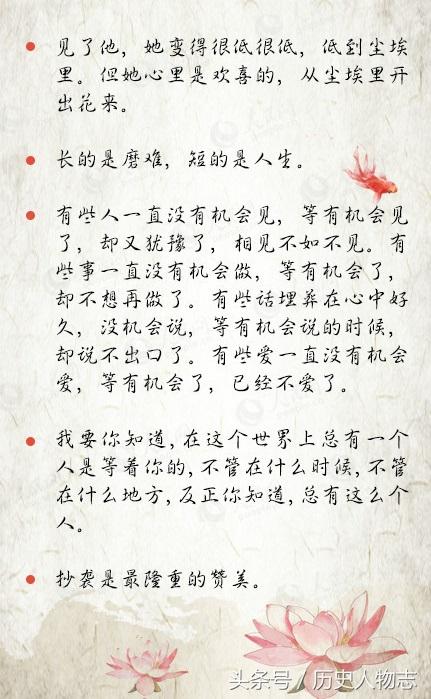 见了他，她变得很低很低，低到尘埃
里。但她心里是欢喜的，从尘埃里开
出花来。
长的是磨难，短的是人生。
有些人一直没有机会见，等有机会见
了，却又犹豫了，相见不如不见。有
些事一直没有机会做，等有机会了，
却不想再做了。有些话埋葬在心中好
久，没机会说，等有机会说的时候，
却说不出口了。有些爱一直没有机会
爱，等有机会了，已经不爱了。
我要你知道，在这个世界上总有一个
人是等着你的，不管在什么时候，不管
在什么地方，反正你知道，总有这么个
人。
抄袭是最隆重的赞美。
头条号／历史人物志